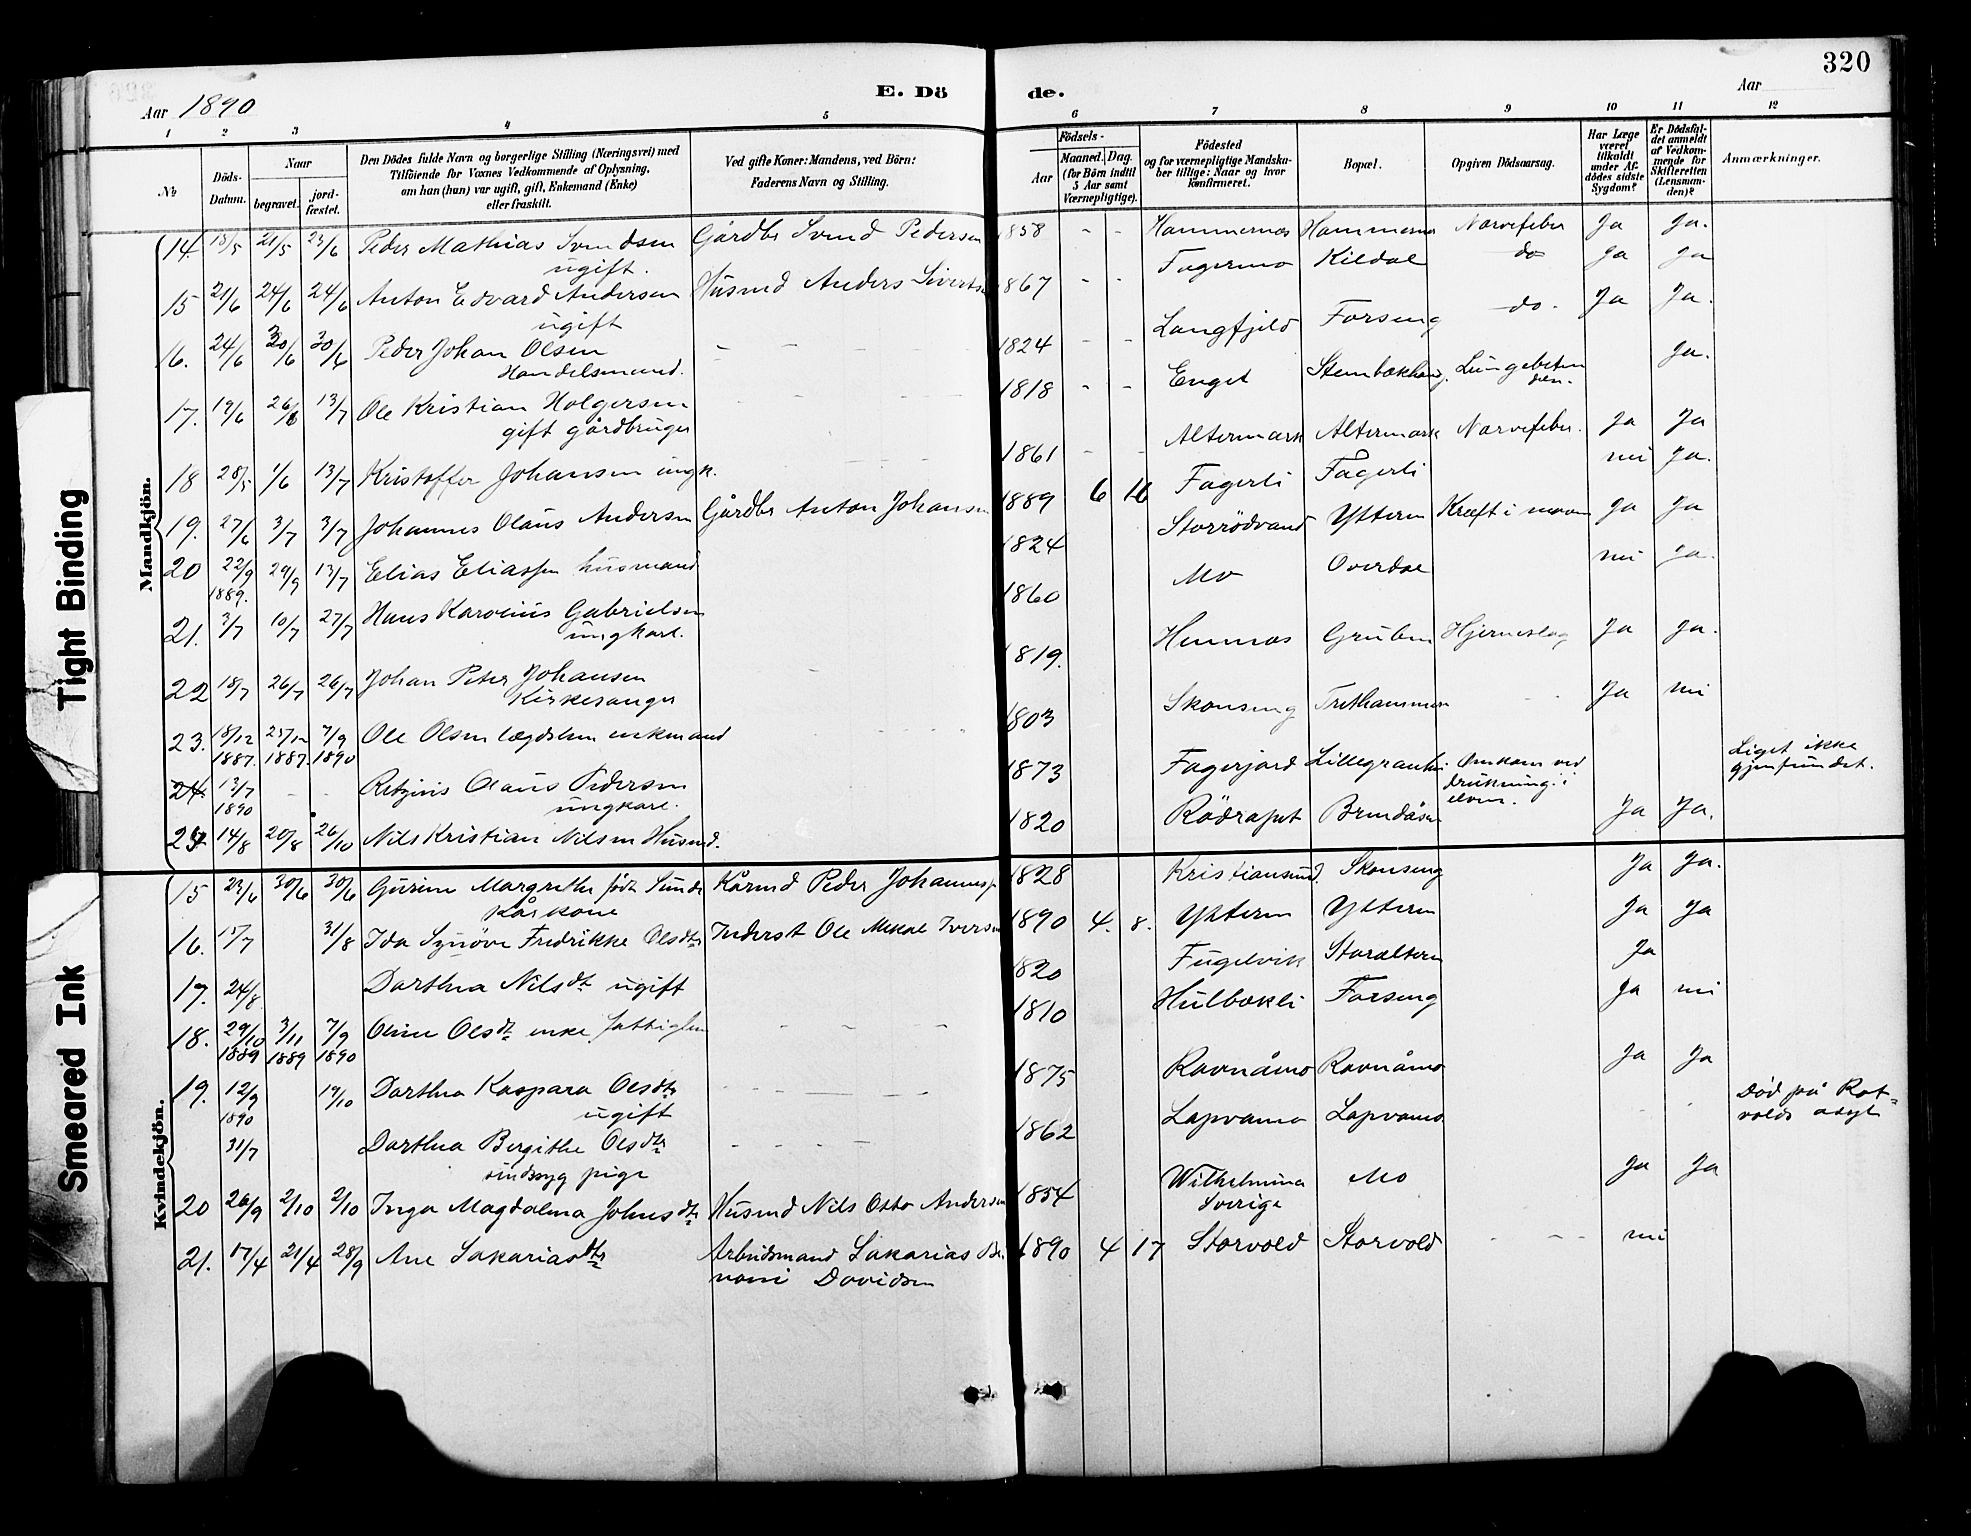 320
Aar 1890
E. Dö
de.
Aar
1 2 3 4 5 6 7 8 9 10 11 12
№
Döds-
Datum.
Naar
begravet.
jord-
fæstet.
Den Dödes fulde Navn og borgerlige Stilling (Næringsvei) med
Tilföiende for Voxnes Vedkommende af Oplysning,
om han (hun) var ugift, gift, Enkemand (Enke)
eller fraskilt.
Ved gifte Koner: Mandens, ved Börn:
Faderens Navn og Stilling.
Födsels-
Aar
Maaned. Dag.
(for Börn indtil
5 Aar samt
Værnepligtige).
Födested
og for værnepligtige Mandska-
ber tillige: Naar og hvor
konfirmeret.
Bopæl.
Opgiven Dödsaarsag.
Har Læge
været
tilkaldt
under Af-
dödes sidste
Sygdom?
Er Dödsfal-
det anmeldt
af Vedkom-
mende for
Skifteretten
(Lensman-
den)?
Anmærkninger.
Mandkjön.
14. 15/5 21/5 23/6 Peder Mathias Svendsen Gårdbr Svend Pedersen 1858 - - Hammernes Nervefeber Ja Ja.
ugift.
15 21/6 24/6 24/6 Anton Edvard Andersen Husmd Anders Sivertsen 1867 - - Fagermo Kildal do Ja Ja
ugift
16. 24/6 30/6 30/6 Peder Johan Olsen 1824 - - Langfjeld Forseng do. Ja Ja.
Handelsmand.
17. 19/6 26/6 13/7 Ole Kristian Holgersen 1818 - - Enget Ja.
gift gårdbruger
18 28/5 1/6 13/7 Kristoffer Johansen ungk. 1861 - - Altermark Altermark Nervefeber. Ja Ja
19. 27/6 3/7 3/7 Johannes Olaus Andersen Gårdbr Anton Johansen 1889 6 16 Fagerli Fagerli nei Ja.
20 22/9 29/9 13/7 Elias Eliassen husmand 1824 Storrödvand Ytteren Kræft i maven Ja Ja
1889.
21. 3/7 10/7 27/7 Hans Karolius Gabrielsen 1860 Mo Overdal nei Ja.
ungkarl.
22 18/7 26/7 26/7 Johan Peter Johansen 1819. Hemnes Gruben Hjerneslag Ja Ja.
Kirkesanger
23. 18/12 23/12 7/9 Ole Olsen lægdslem enkemand 1803 Skonseng Ja nei
1887. 1887. 1890
24. 13/7 - - Olaus Pedersen 1873 Fagerjord Omkom ved Liget ikke
1890 ungkarl. drukning i gjenfundet.
elven.
24 14/8 20/8 26/10 Nils Kristian Nilsen Husmd. 1820 Rödrapet Brendåsen Ja Ja.
Kvindekjön.
15 23/6 30/6 30/6 Margrethe født Sunde Kårmd Peder Johanness 1828 Kristiansund. Skonseng Ja Ja.
Kårkone
16. 15/7 31/8 Ida Synöve Fredrikke Olsdtr Inderst Ole Mikal Iversen 1890 4. 8. Ytteren Ytteren Ja Ja
17. 24/8 Dorthea Nilsdt ugift 1820 Fugelvik Storalteren Ja
18. 29/10 3/11 7/9 Oline Olsdt enke fattiglem 1810 Hulbækli Forseng Ja nei
1889 1889 1890
19. 12/9 19/10 Dorthea Kaspara Olsdtr 1875 Ravnåmo Ravnåmo Ja Ja
1890 ugift
31/7 Dorthea Bergithe Olsdtr 1862 Lapvamo Lapvamo Død på Rot-
sindssyg pige volds asyl
20 26/9 2/10 2/10 Inga Magdalena Johnsdtr Husmd Nils Otto Andersen 1854 Wilhelmina Mo Ja Ja
Sverige
21. 17/4 21/4 28/9 Ane Sakariasdtr Arbeidsmand Sakarias Be 1890 4 17 Storvold Storvold nei
noni Davidsen
Tight Binding
Smeared Ink